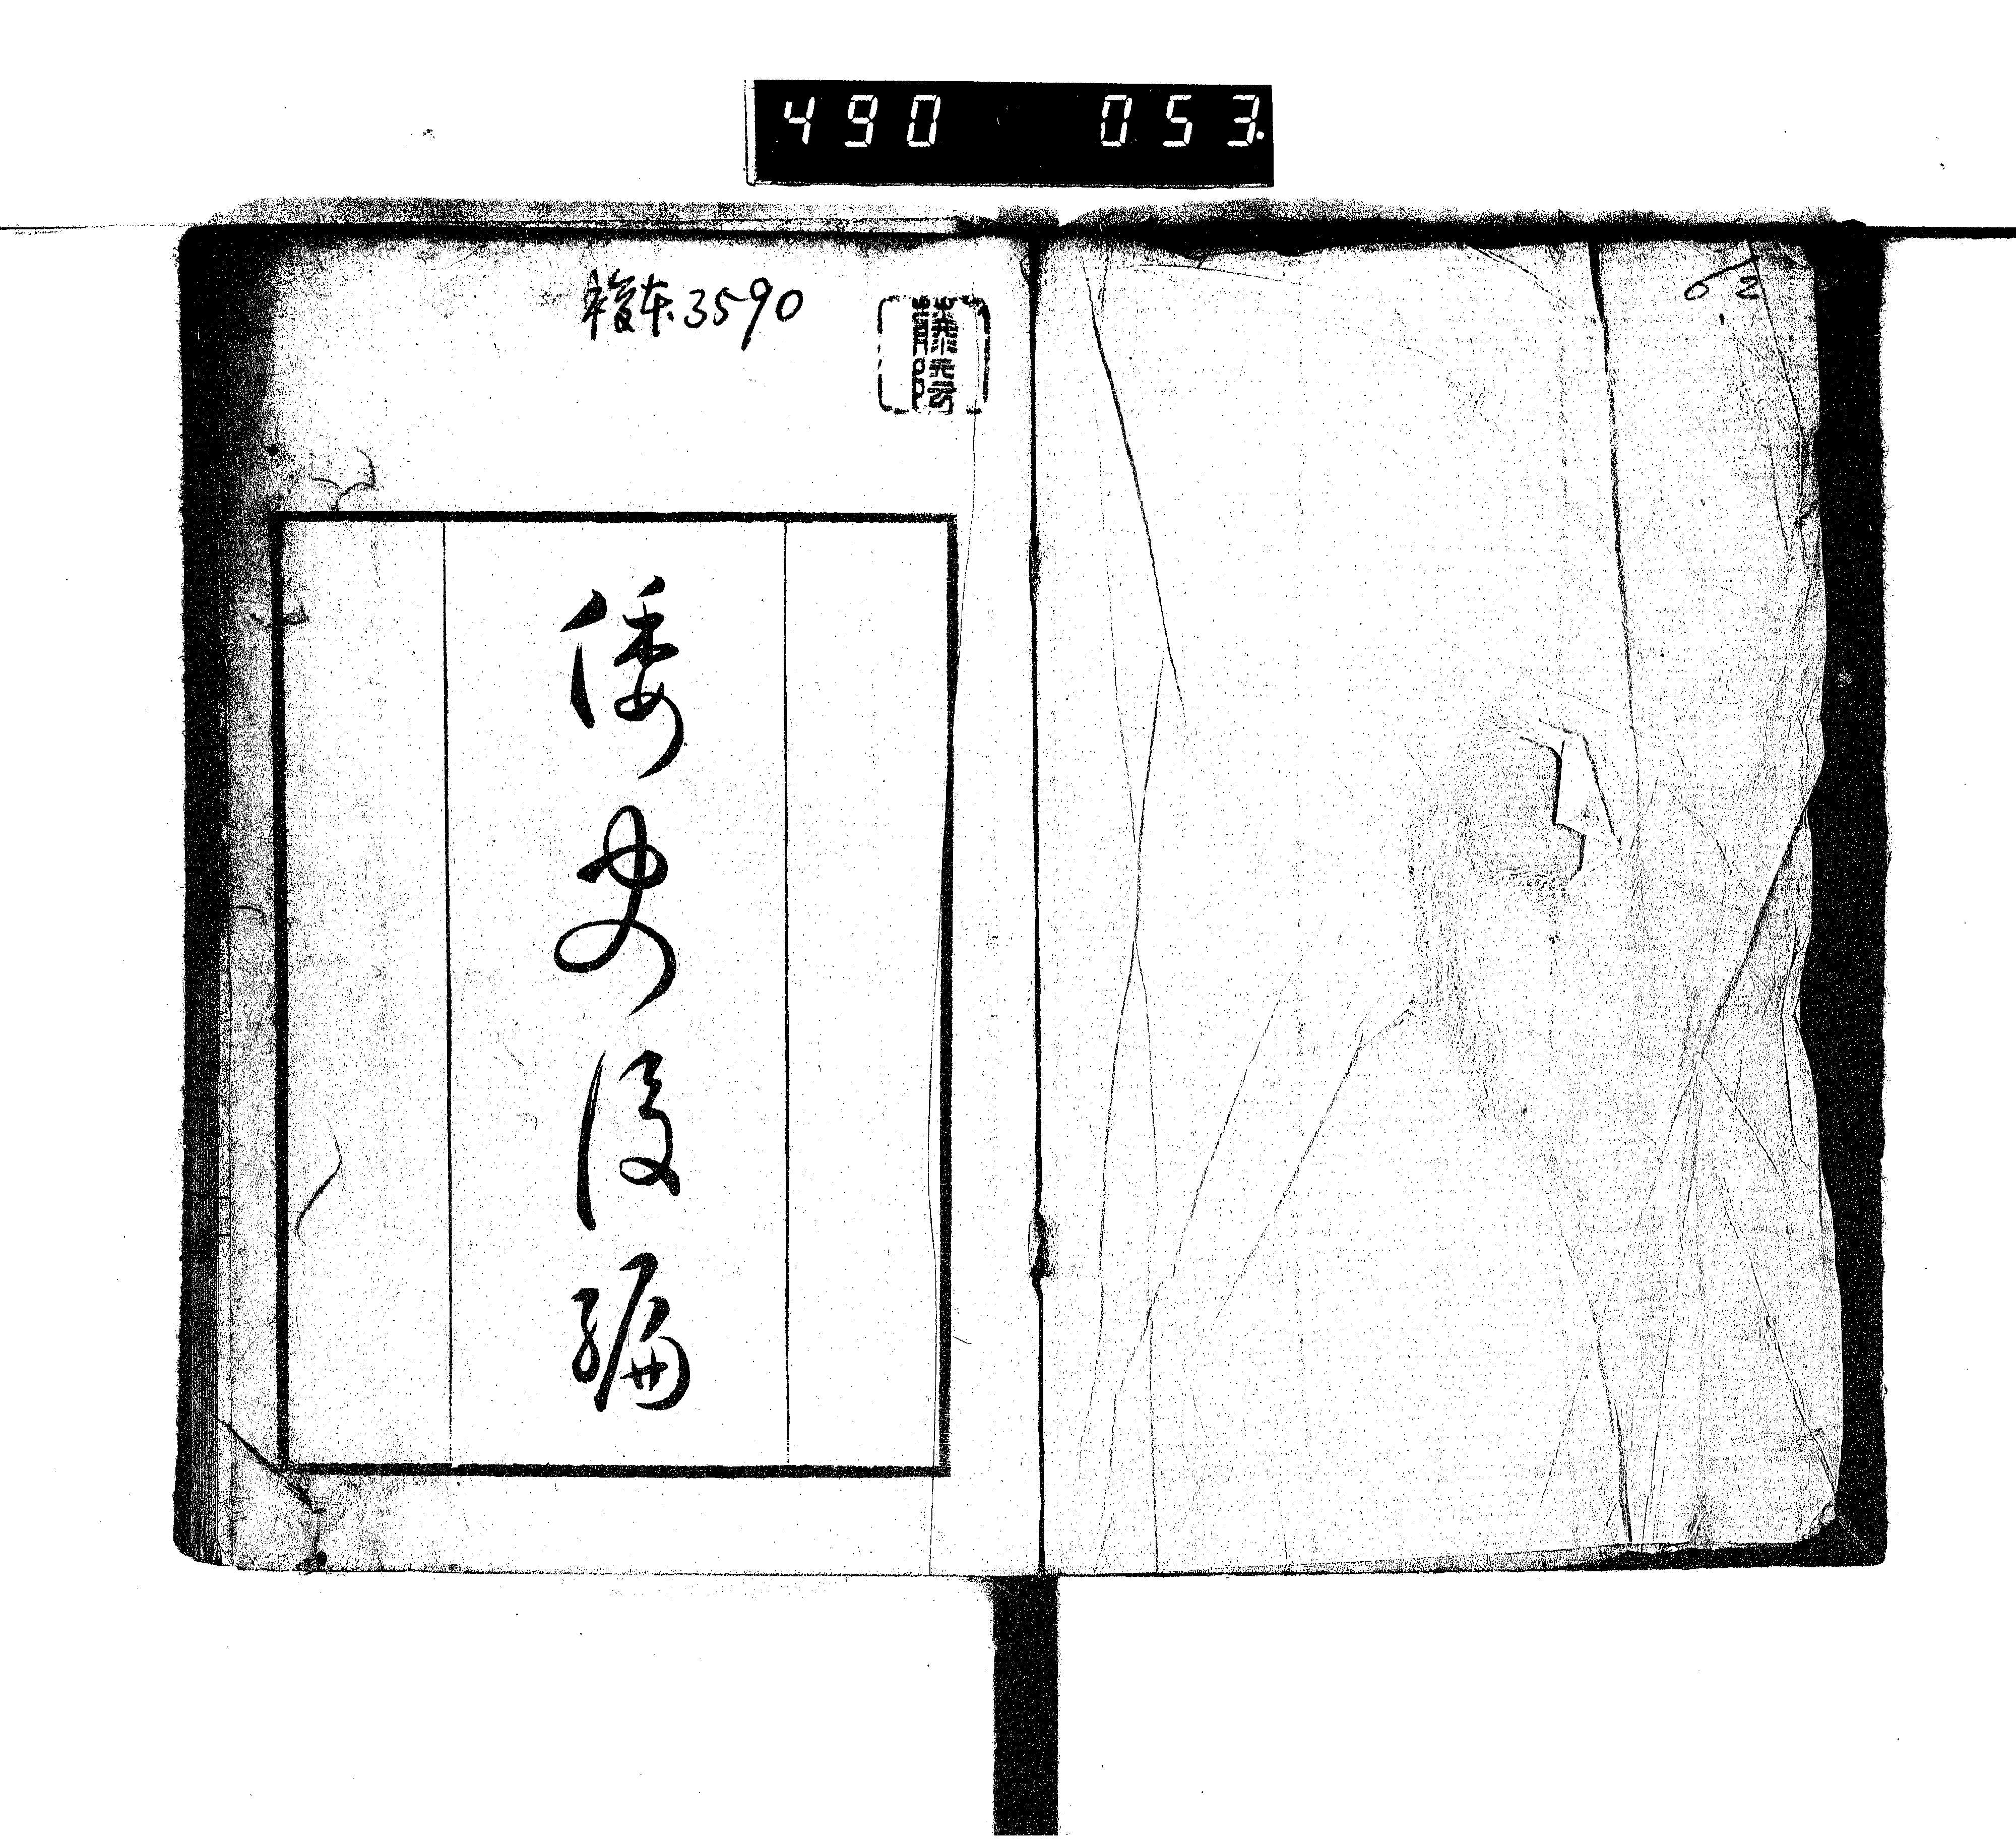 490 053.
複本.3590
62
倭史後編